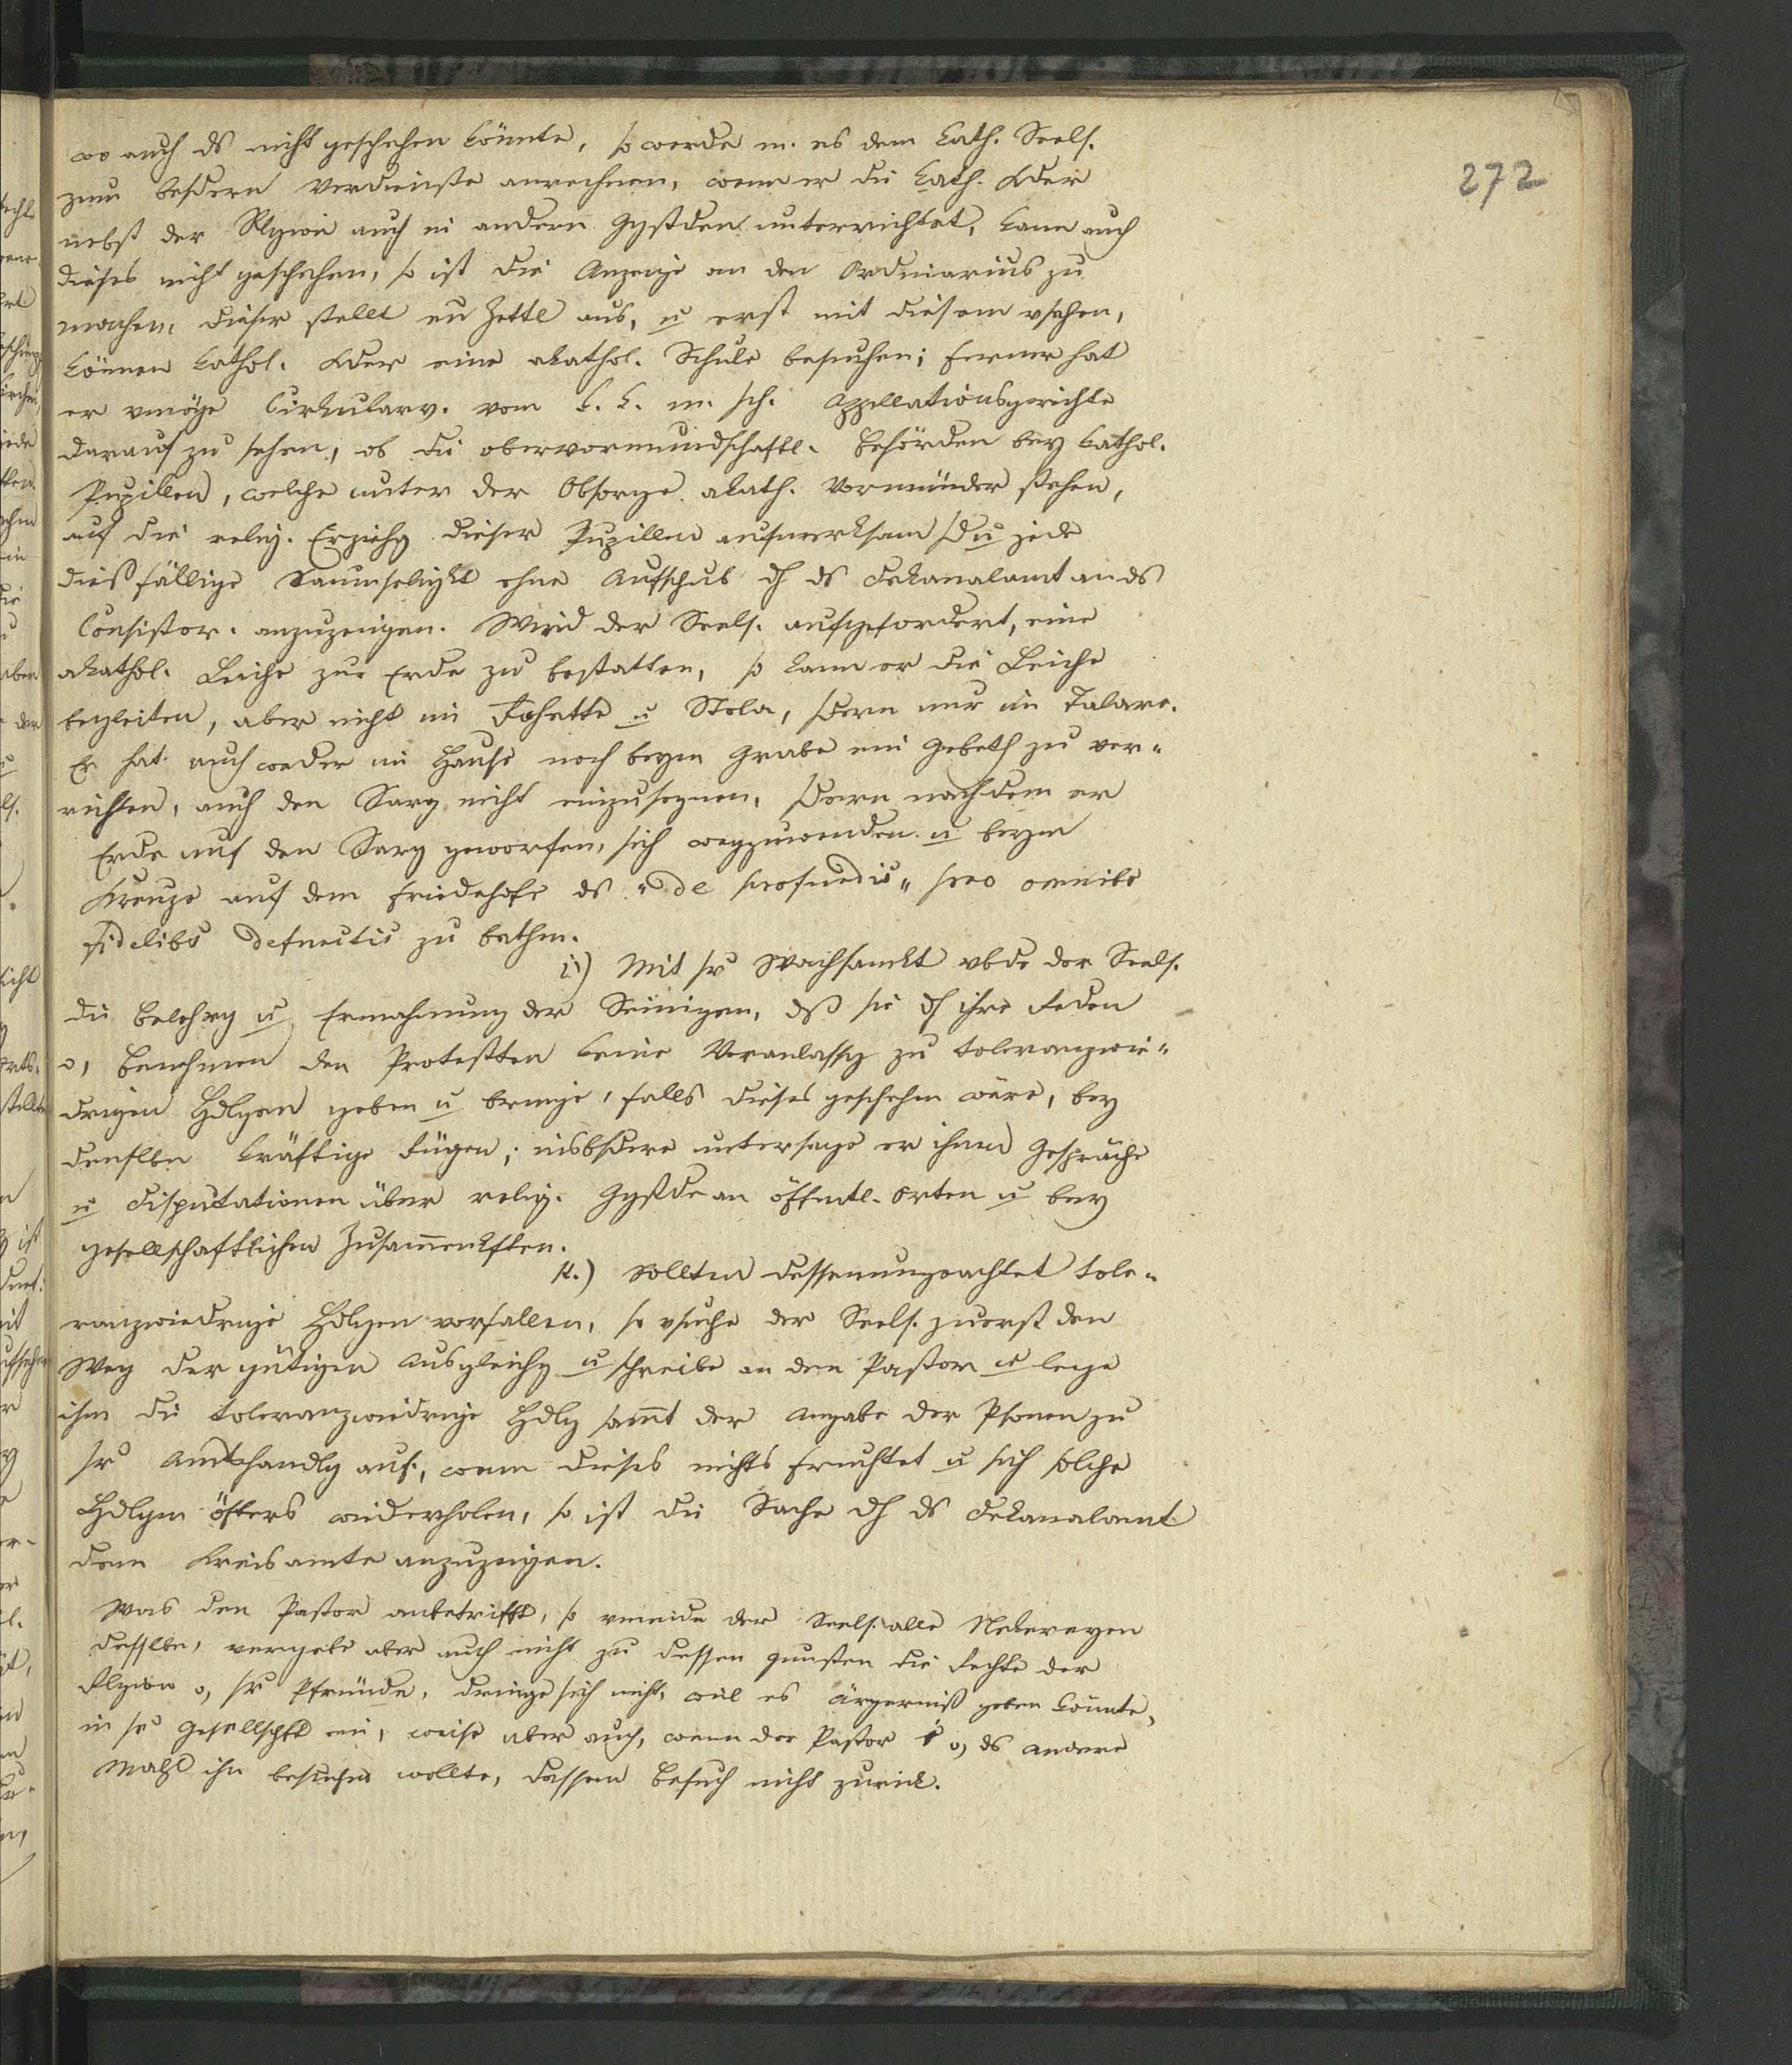 272
wo auch ds nicht geschehen könnte, so werde m. es dem kath. Seels.
zum besdern Verdienste anrechnen, wenn er die kath. Kder
nebst der Rlgion auch in andern Ggstden unterrichtet, kann auch
dieses nicht geschehen, so ist die Anzeige an den Ordinarius zu
machen, dieser stellt en Zettl aus, u erst mit diesem vsehen,
können kathol. Kder eine akathol. Schule besuchen; ferner hat
er vmöge Cirkularv. vom k. k. m. sch. Appellationsgerichte
darauf zu sehen, ob die obervormundschaftl. Behörden bey kathol.
Pupillen, welche unter der Obsorge akath. Vormünder stehen,
auf die relig. Erziehg dieser Pupillen aufmerksam sd u jede
dießfällige Saumseligkt ohne Aufschub dh ds Dekanalamt an ds
Consistor. anzuzeigen. Wird der Seels. aufgefordert, eine
akathol. Leiche zur Erde zu bestatten, so kann er die Leiche
begleiten, aber nicht im Rohette u Stola, sdern nur im Talare.
Er hat auch weder im Hause noch beym Grabe ein Gebeth zu ver-
richten, auch den Sarg nicht einzusegnen, sdern nachdem er
Erde auf den Sarg geworfen, sich wegzuwenden u beym
Kreuze auf dem Friedhofe ds "de profundis" pro omnibs
fidelibs defunctis zu bethen.
i) Mit sr Wachsamkt vbde der Seels.
die Belehrg u Ermahnung der Seinigen, dß sie dh ihre Reden
o, Benehmen den Protestten keine Veranlassg zu toleranzwie-
drigen Hdlgen geben u bringe, falls dieses geschehen wäre, bey
denslben kräftige Rügen; insbsdere untersage er ihnen Gespräche
u Disputationen über relig. Ggstde an öffentl. Orten u bey
gesellschaftlichen Zusammenkften.
k.) Sollten dessenungeachtet tole-
ranzwiedrige Hdlgen vorfallen, so vsuche der Seels. zuerst den
Weg der gütigen Ausgleichg u schreibe an den Pastor u lege
ihm die toleranzwiedrige Hdlg samt der Angabe der Psonen zu
sr Amtshandlg auf, wenn dieses nichts fruchtet u sich solche
Hdlgen öfters wiederholen, so ist die Sache dh ds Dekanalamt
dem Kreisamte anzuzeigen.
Was den Pastor anbetrifft, so vmeide der Seels. alle Nekereyen
desslben, vergebe aber auch nicht zu dessen gunsten die Rechte der
Rlgion o, sr Pfründe, dringe sich nicht, weil es ärgerniß geben könnte,
in se Gesellschft ein, weise aber auch, wenn der Pastor o, ds andere
Mahl ihn besuchen wollte, dessen Besuch nicht zurück.